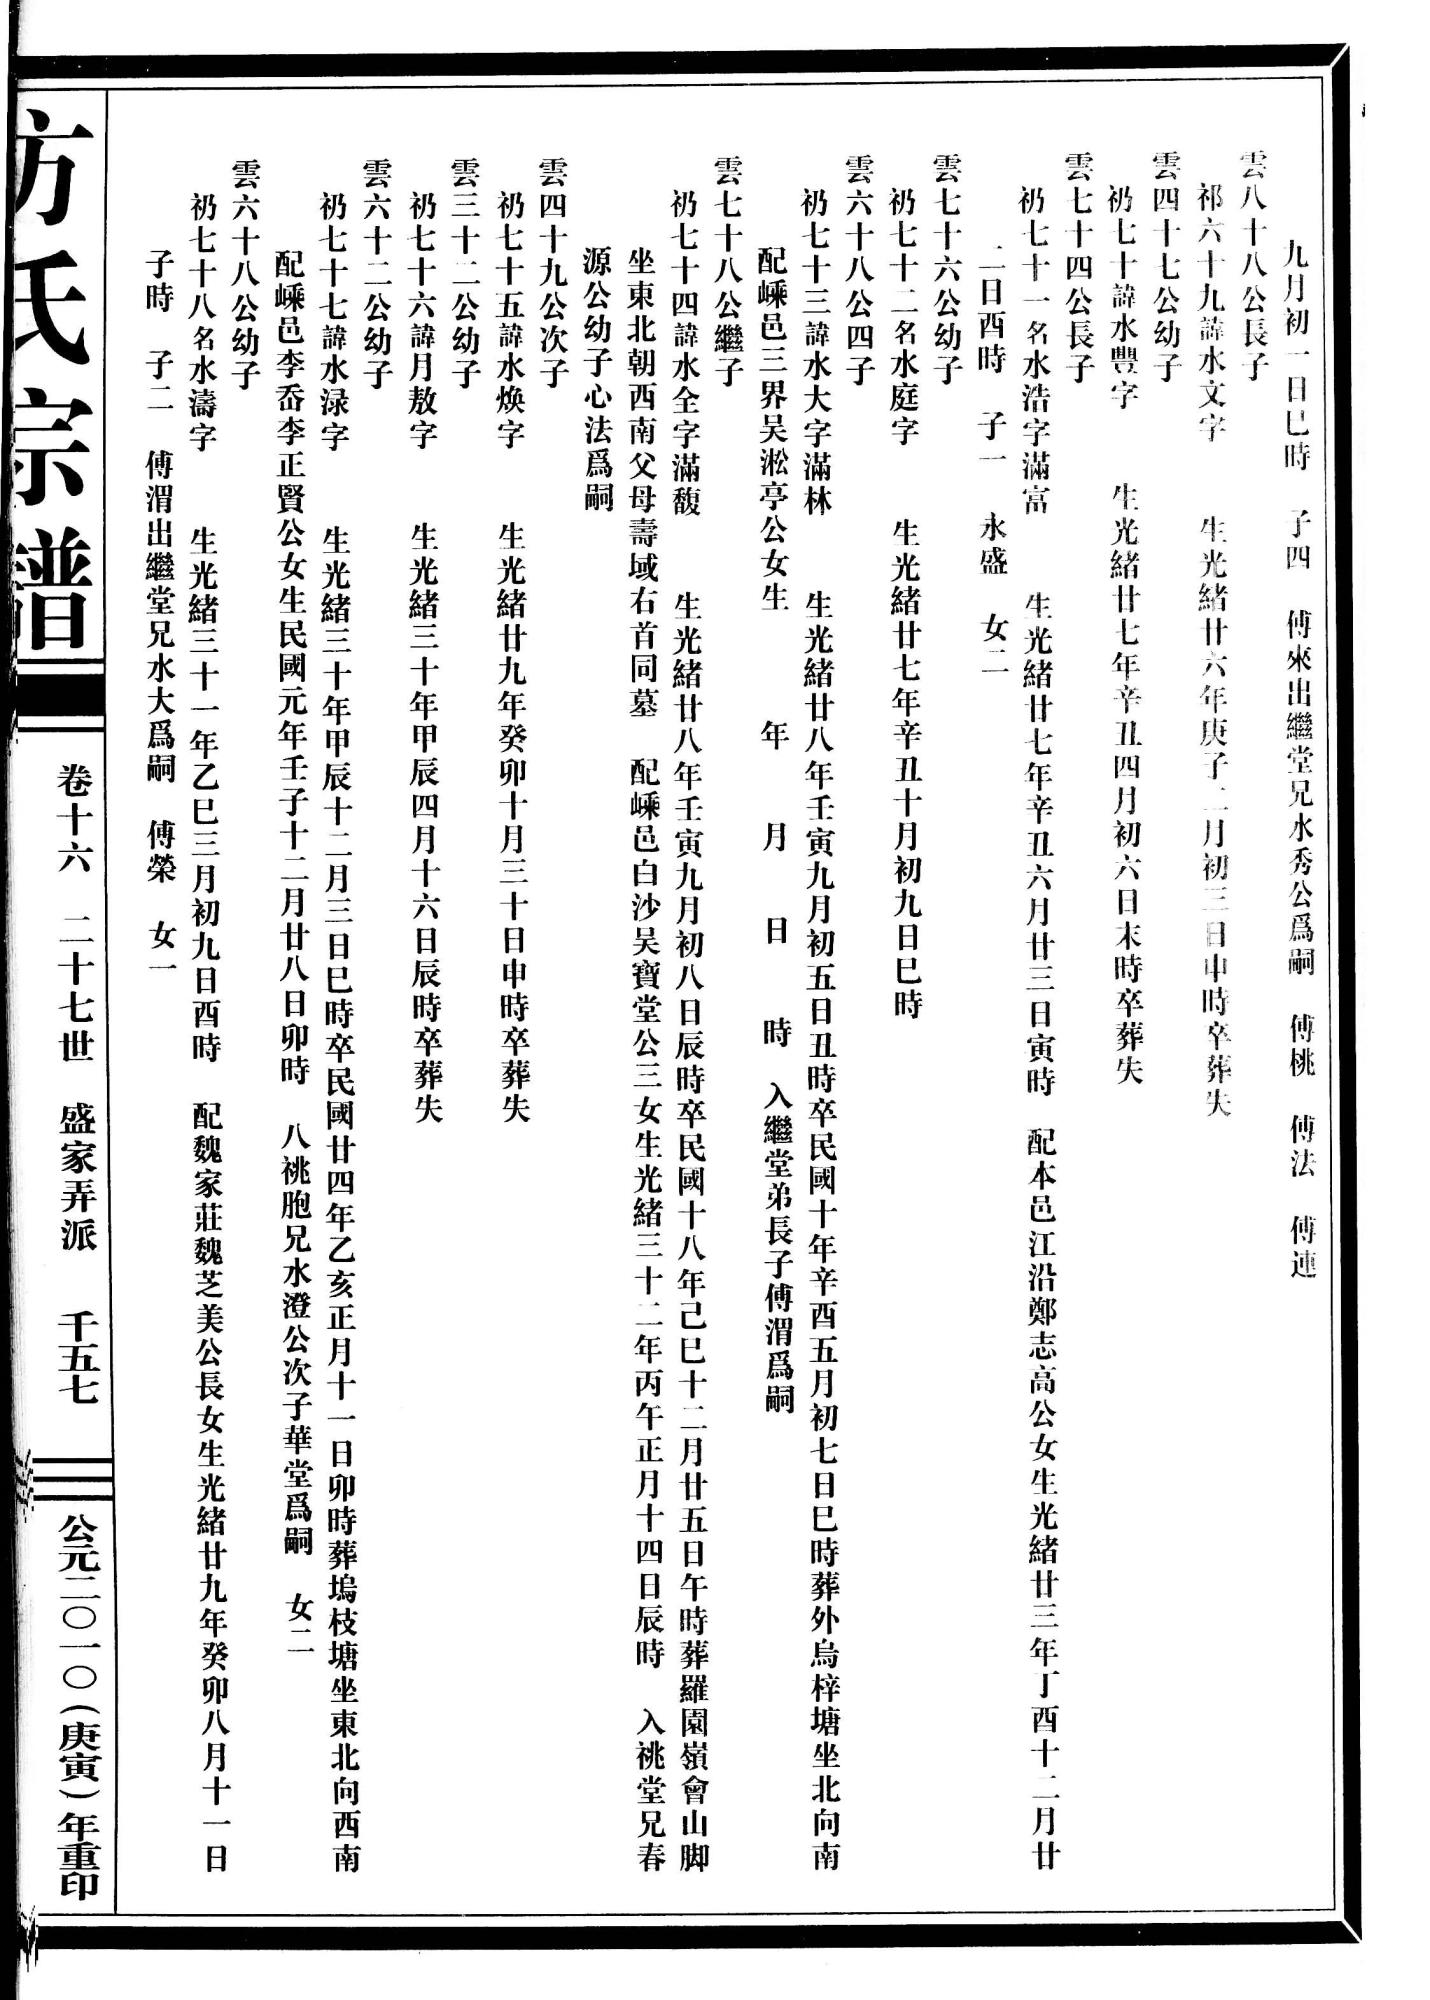 九月初一日巳時　子四　傅來出繼堂兄水秀公爲嗣　傅桃　傅法　傅連
雲八十八公長子
祁六十九諱水文字　生光緒廿六年庚子二月初三日申時卒葬失
雲四十七公幼子
礽七十諱水豐字　生光緒廿七年辛丑四月初六日末時卒葬失
雲七十四公長子
礽七十一名水浩字滿富　生光緒廿七年辛丑六月廿三日寅時　配本邑江沿鄭志高公女生光緒廿三年丁酉十二月廿
二日酉時　子一　永盛　女二
雲七十六公幼子
礽七十二名水庭字　生光緒廿七年辛丑十月初九日巳時
雲六十八公四子
礽七十三諱水大字滿林　生光緒廿八年壬寅九月初五日丑時卒民國十年辛酉五月初七日巳時葬外烏梓塘坐北向南
配嵊邑三界吴淞亭公女生　年　月　日　時　入繼堂弟長子傅渭爲嗣
雲七十八公繼子
礽七十四諱水全字滿馥　生光緒廿八年壬寅九月初八日辰時卒民國十八年己巳十二月廿五日午時葬羅園嶺會山脚
坐東北朝西南父母壽域右首同墓　配嵊邑白沙吴寶堂公三女生光緒三十二年丙午正月十四日辰時　入祧堂兄春
源公幼子心法爲嗣
雲四十九公次子
礽七十五諱水焕字　生光緒廿九年癸卯十月三十日申時卒葬失
雲三十二公幼子
礽七十六諱月敖字　生光緒三十年甲辰四月十六日辰時卒葬失
雲六十二公幼子
礽七十七諱水渌字　生光緒三十年甲辰十二月三日巳時卒民國廿四年乙亥正月十一日卯時葬塢枝塘坐東北向西南
配嵊邑李岙李正賢公女生民國元年壬子十二月廿八日卯時　八祧胞兄水澄公次子華堂爲嗣　女二
雲六十八公幼子
礽七十八名水濤字　生光緒三十一年乙巳三月初九日酉時　配魏家莊魏芝美公長女生光緒廿九年癸卯八月十一日
子時　子二　傅渭出繼堂兄水大爲嗣　傅榮　女一
方氏宗譜
卷十六　二十七世　盛家弄派　千五七
公元二〇一〇（庚寅）年重印